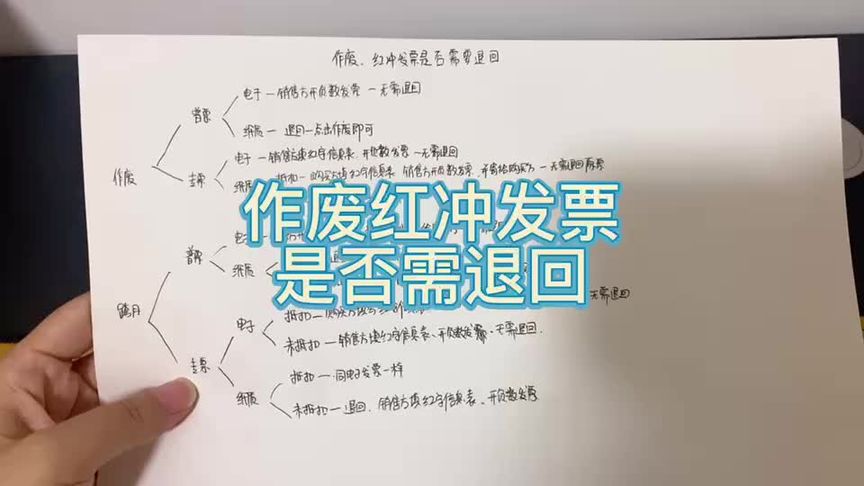 作废、红冲发票是否需要退回
普票
电子—销售方开负数发票—无需退回
纸质—退回—点击作废即可
作废
专票
电子—销售方填红字信息表、开负数发票—无需退回
纸质
抵扣—购买方填红字信息表、销售方开负数发票、并寄给购买方—无需退回原票
作废红冲发票
是否需退回
跨月
普票
电子
纸质
无需退回
专票
电子
抵扣
未抵扣—销售方填红字信息表、开负数发票、无需退回
纸质
抵扣—同电子发票一样
未抵扣—退回、销售方填红字信息表、开负数发票